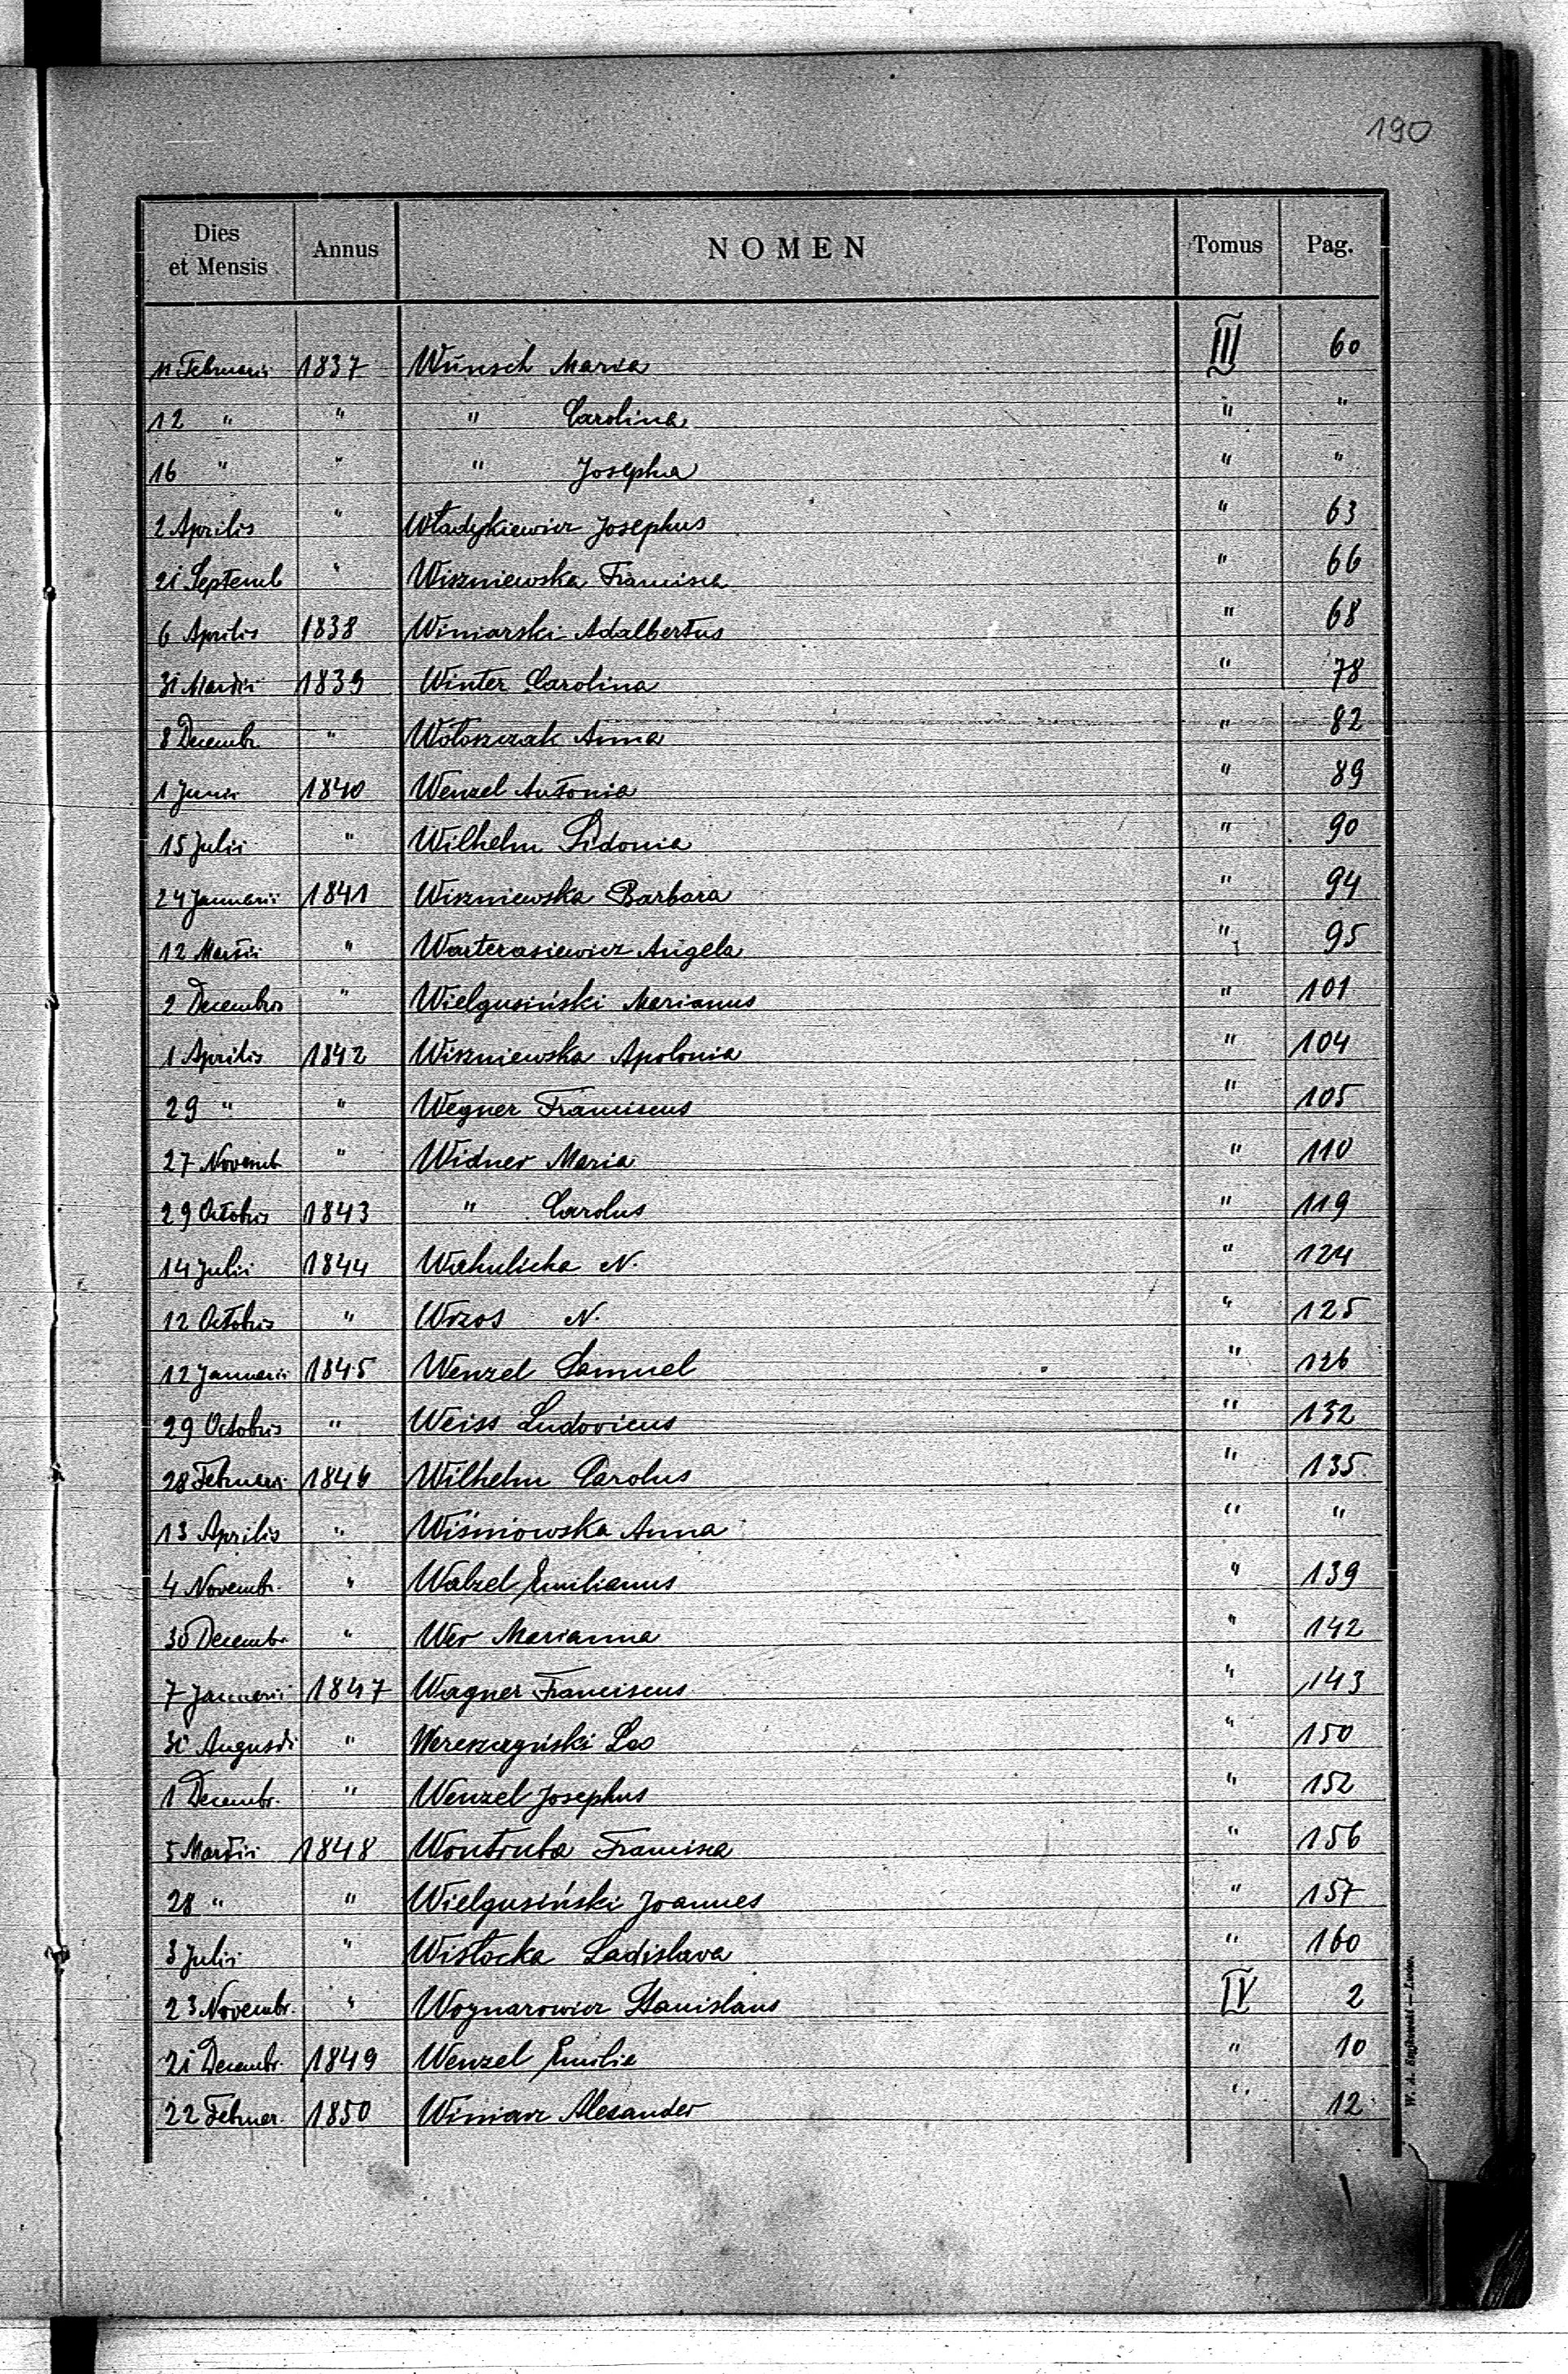 190
Dies et Mensis Annus NOMEN Tomus Pag.
11 Februarii 1837 Wünsch Maria III 60
12 " " " Carolina " "
16 " " " Josepha " "
2 Aprilis " Władykiewicz Josephus " 63
21 Septemb " Wiszniewska Francisca " 66
6 Aprilis 1838 Winiarski Adalbertus " 68
31 Martii 1839 Winter Carolina " 78
8 Decembr. " Wołoszczak Anna " 82
1 Junii 1840 Wenzel Antonia " 89
15 Julii " Wilhelm Sidonia " 90
24 Januarii 1841 Wiszniewska Barbara " 94
12 Martii " Warterasiewicz Angela " 95
2 Decembris " Wielgusiński Marianus " 101
1 Aprilis 1842 Wiszniewska Apolonia " 104
29 " " Wegner Franciscus " 105
27 Novemb. " Widner Maria " 110
29 Octobris 1843 " Carolus " 119
14 Julii 1844 Wahulicka N. " 124
12 Octobris " Wrzos N. " 125
12 Januarii 1845 Wenzel Samuel " 126
29 Octobris " Weiss Ludovicus " 132
28 Februarii 1846 Wilhelm Carolus " 135
13 Aprilis " Wiśniowska Anna " "
4 Novembr. " Walzel Emilianus " 139
30 Decembr. " Wer Marianna " 142
7 Januarii 1847 Wagner Franciscus " 143
31 Augusti " Wereszczyński Leo " 150
1 Decembr. " Wenzel Josephus " 152
5 Martii 1848 Wontruba Francisca " 156
28 " " Wielgusiński Joannes " 157
3 Julii " Wisłocka Ladislava " 160
23 Novembr. " Woynarowicz Stanislaus IV 2
21 Decembr. 1849 Wenzel Emilia " 10
22 Februar. 1850 Winiarz Alexander " 12